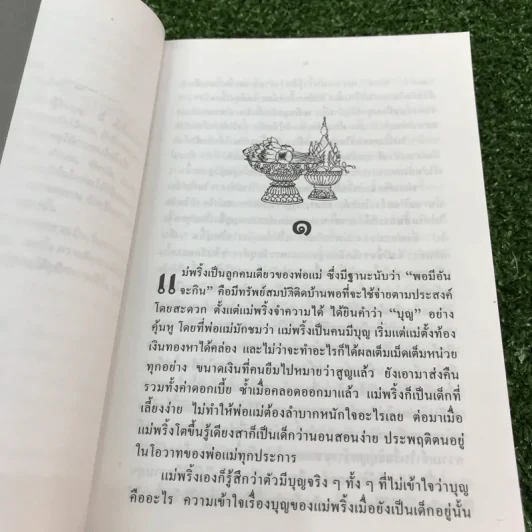 ๑
แม่พริ้งเป็นลูกคนเดียวของพ่อแม่ ซึ่งมีฐานะนับว่า “พอมีอัน
จะกิน” คือมีทรัพย์สมบัติติดบ้านพอที่จะใช้จ่ายตามประสงค์
โดยสะดวก ตั้งแต่แม่พริ้งจำความได้ ได้ยินคำว่า “บุญ” อย่าง
คุ้นหู โดยที่พ่อแม่มักชมว่า แม่พริ้งเป็นคนมีบุญ เริ่มแต่แม่ตั้งท้อง
เงินทองหาได้คล่อง และไม่ว่าจะทำอะไรก็ได้ผลเต็มเม็ดเต็มหน่วย
ทุกอย่าง ขนาดเงินที่คนยืมไปหมายว่าสูญแล้ว ยังเอามาส่งคืน
รวมทั้งค่าดอกเบี้ย ซ้ำเมื่อคลอดออกมาแล้ว แม่พริ้งก็เป็นเด็กที่
เลี้ยงง่าย ไม่ทำให้พ่อแม่ต้องลำบากหนักใจอะไรเลย ต่อมาเมื่อ
แม่พริ้งโตขึ้นรู้เดียงสาก็เป็นเด็กว่านอนสอนง่าย ประพฤติตนอยู่
ในโอวาทของพ่อแม่ทุกประการ
แม่พริ้งเองก็รู้สึกว่าตัวมีบุญจริง ๆ ทั้ง ๆ ที่ไม่เข้าใจว่าบุญ
คืออะไร ความเข้าใจเรื่องบุญของแม่พริ้งเมื่อยังเป็นเด็กอยู่นั้น